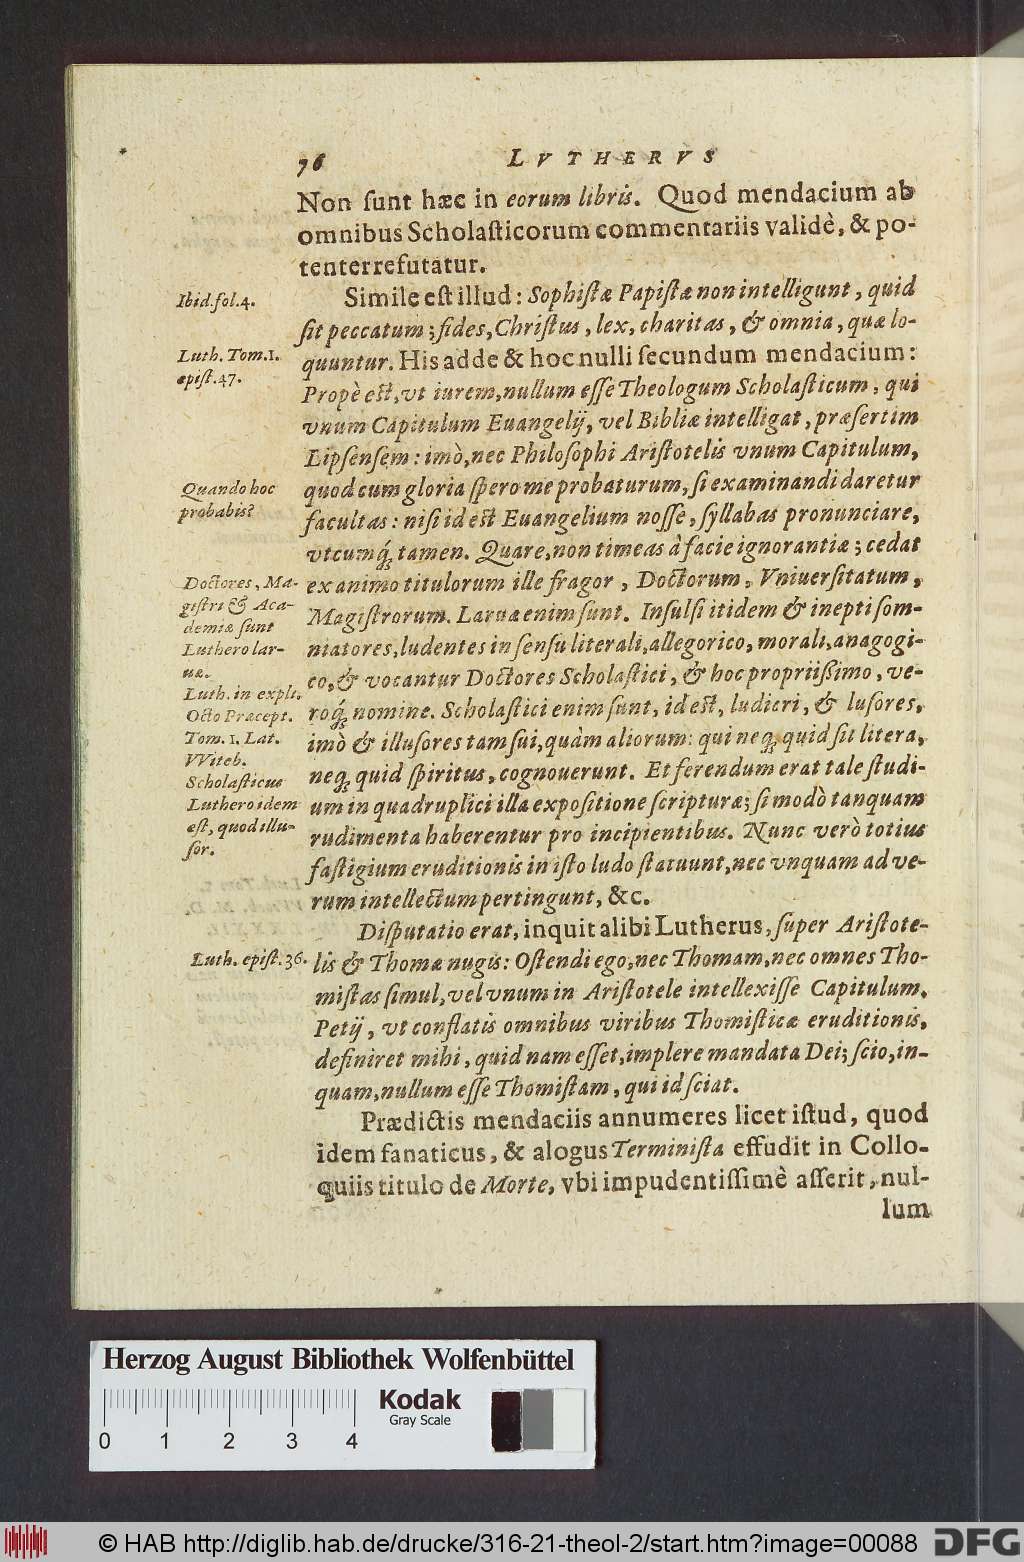 76 LVTHERVS
Non ſunt hæc in eorum libris. Quod mendacium ab
omnibus Scholaſticorum commentariis validè, & po-
tenter refutatur.
Ibid. fol. 4.
Simile eſt illud: Sophiſtæ Papiſtæ non intelligunt, quid
ſit peccatum; fides, Chriſtus, lex, charitas, & omnia, quæ lo-
Luth. Tom. 1.
epiſt. 47.
quuntur. His adde & hoc nulli ſecundum mendacium:
Propè eſt, vt iurem, nullum eſſe Theologum Scholaſticum, qui
vnum Capitulum Euangelij, vel Bibliæ intelligat, præſertim
Lipſenſem: imò, nec Philoſophi Ariſtotelis vnum Capitulum,
Quando hoc
probabis?
quod cum gloria ſpero me probaturum, ſi examinandi daretur
facultas: niſi id eſt Euangelium noſſe, ſyllabas pronunciare,
vtcumq́; tamen. Quare, non timeas à facie ignorantiæ; cedat
Doctores, Ma-
giſtri & Aca-
demiæ ſunt
Luthero lar-
uæ.
ex animo titulorum ille fragor, Doctorum, Vniuerſitatum,
Magiſtrorum. Laruæ enim ſunt. Inſulſi itidem & inepti ſom-
niatores, ludentes in ſenſu literali, allegorico, morali, anagogi-
Luth. in expli.
Octo Præcept.
Tom. 1. Lat.
VViteb.
Scholaſticus
Luthero idem
eſt, quod illu-
ſor.
co, & vocantur Doctores Scholaſtici, & hoc propriißimo, ve-
roq́; nomine. Scholaſtici enim ſunt, id eſt, ludicri, & luſores,
imò & illuſores tam ſui, quàm aliorum: qui neq; quid ſit litera,
neq; quid ſpiritus, cognouerunt. Et ferendum erat tale ſtudi-
um in quadruplici illa expoſitione ſcripturæ; ſi modò tanquam
rudimenta haberentur pro incipientibus. Nunc verò totius
faſtigium eruditionis in iſto ludo ſtatuunt, nec vnquam ad ve-
rum intellectum pertingunt, &c.
Diſputatio erat, inquit alibi Lutherus, ſuper Ariſtote-
Luth. epiſt. 36.
lis & Thomæ nugis: Oſtendi ego, nec Thomam, nec omnes Tho-
miſtas ſimul, vel vnum in Ariſtotele intellexiſſe Capitulum.
Petij, vt conflatis omnibus viribus Thomiſticæ eruditionis,
definiret mihi, quid nam eſſet, implere mandata Dei; ſcio, in-
quam, nullum eſſe Thomiſtam, qui id ſciat.
Prædictis mendaciis annumeres licet iſtud, quod
idem fanaticus, & alogus Terminiſta effudit in Collo-
quiis titulo de Morte, vbi impudentiſſimè aſſerit, nul-
lum
Herzog August Bibliothek Wolfenbüttel
Kodak
Gray Scale
0 1 2 3 4
© HAB http://diglib.hab.de/drucke/316-21-theol-2/start.htm?image=00088
DFG